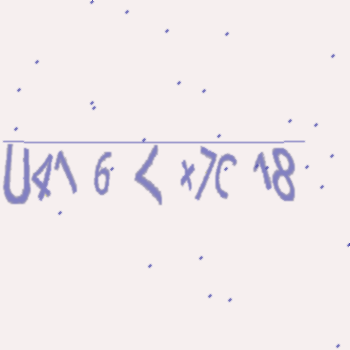 U41 6 < x7C 18